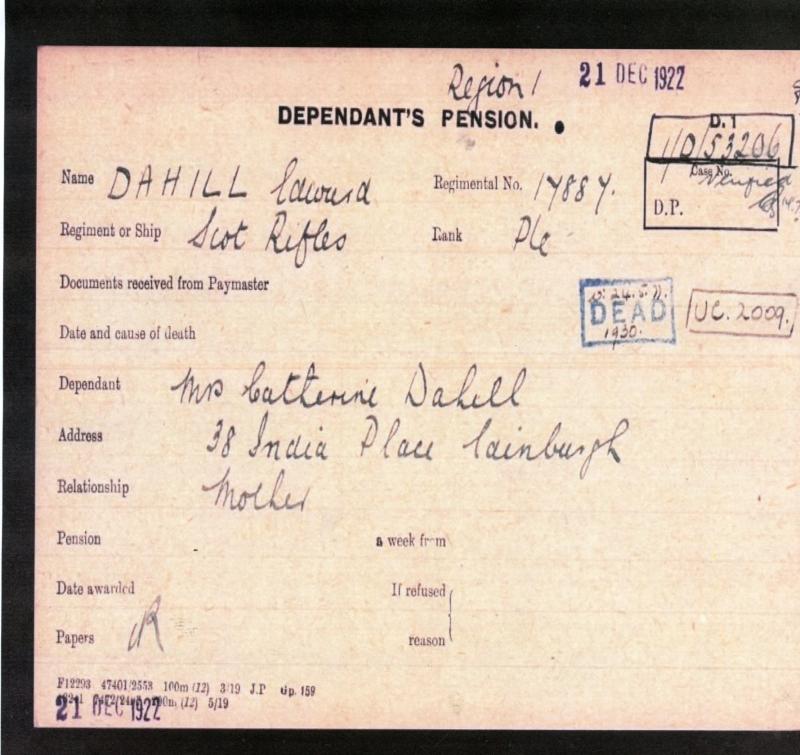 Region 1 21 DEC 1922
DEPENDANT'S PENSION.
D.1
1/D/53206
Case No.
Verified
D.P.
Name DAHILL Edward Regimental No. 17887.
Regiment or Ship Scot Rifles Rank Pte
Documents received from Paymaster
DEAD
1930.
UC. 2009.
Date and cause of death
Dependant Mrs Catherine Dahill
Address 38 India Place Edinburgh
Relationship Mother
Pension a week from
Date awarded If refused
Papers R reason
F12293 47401/2553 100m (12) 3/19 J.P Gp. 159
(12) 5/19
21 DEC 1922